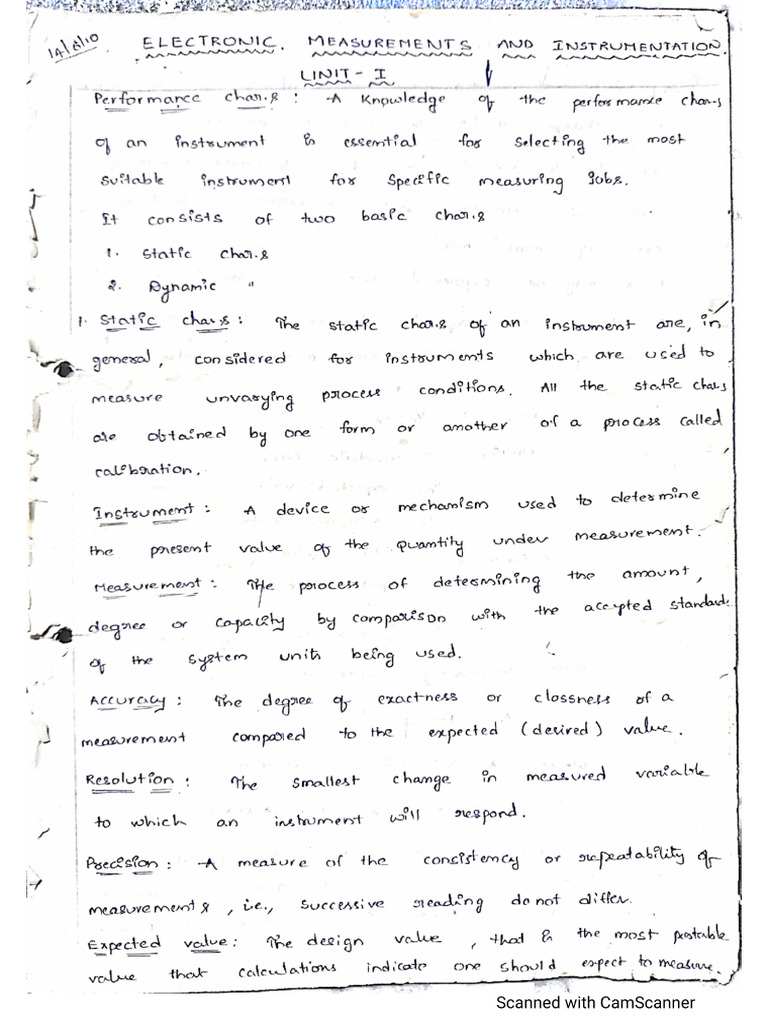 14/6/10
ELECTRONIC. MEASUREMENTS AND INSTRUMENTATION.
UNIT - I
Performance char.s : A Knowledge of the performance chars
of an instrument is essential for selecting the most
suitable instrument for specific measuring jobs.
It consists of two basic char.s
1. Static char.s
2. Dynamic "
1. Static char.s : The static char.s of an instrument are, in
general, considered for instruments which are used to
measure unvarying process conditions. All the static chars
are obtained by one form or another of a process called
calibration.
Instrument : A device or mechanism used to determine
the present value of the quantity under measurement.
Measurement : The process of determining the amount,
degree or capacity by comparison with the accepted standards
of the system units being used.
Accuracy : The degree of exactness or clossness of a
measurement compared to the expected (desired) value.
Resolution : The smallest change in measured variable
to which an instrument will respond.
Precision : A measure of the consistency or repeatability of
measurements, i.e., successive reading do not differ.
Expected value : The design value, that is the most probable
value that calculations indicate one should expect to measure.
Scanned with CamScanner